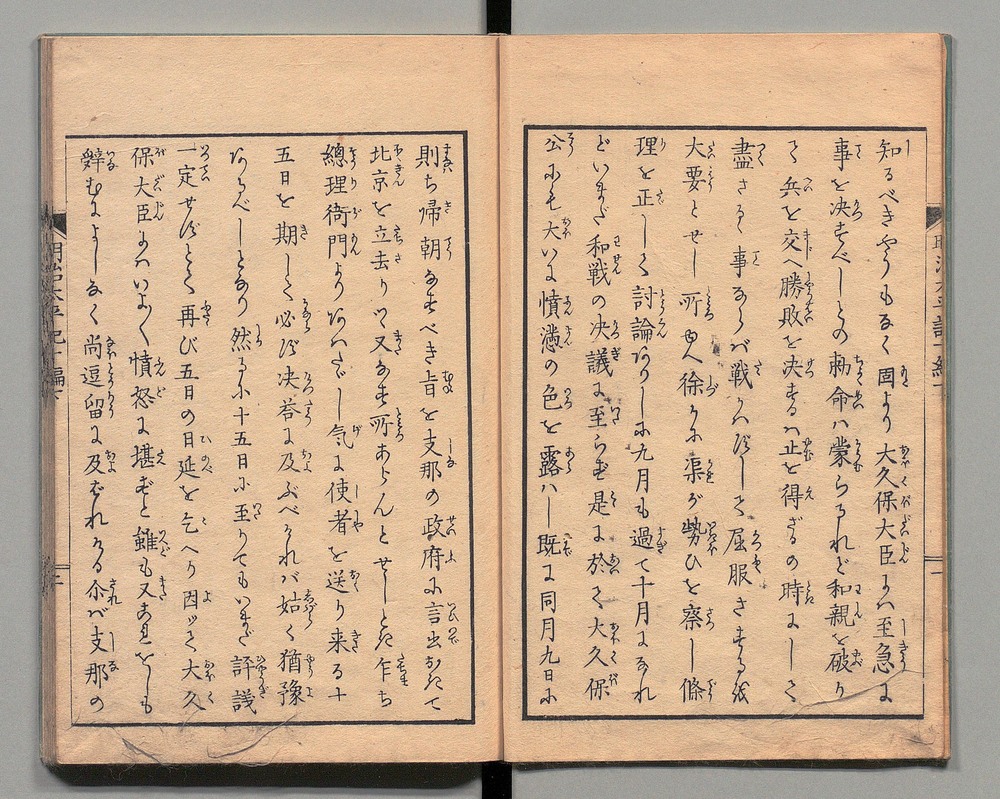 知るべきやうもなく固より大久保大臣には至急に
事を决すべしとの勅命ハ蒙らるれど和親を破り
て兵を交へ勝敗を决するハ止を得ざるの時にして
盡さる事ならバ戦ハずして屈服さするを
大要とせし所ゆへ徐かに渠が勢ひを察し條
理を正しく討論ありしに九月も過て十月になれ
どいまだ和戦の决議に至らず是に於て大久保
公にも大いに憤懣の色を露ハし既に同月九日に
則ち帰朝なすべき旨を支那の政府に言出おきて
北京を立去りて又なす所あらんとせしとき乍ち
總理衙門よりあハたゞし気に使者を送り来る十
五日を期して必ず决答に及ぶべけれバ姑く猶豫
あるべしとなり然るに十五日に至りてもいまだ評議
一定せずとて再び五日の日延を乞へり因ッて大久
保大臣にハいよ〳〵憤怒に堪ずと雖も又
辞むによしなく尚逗留に及ばれける尓バ支那の
明治太平記十一編下
二